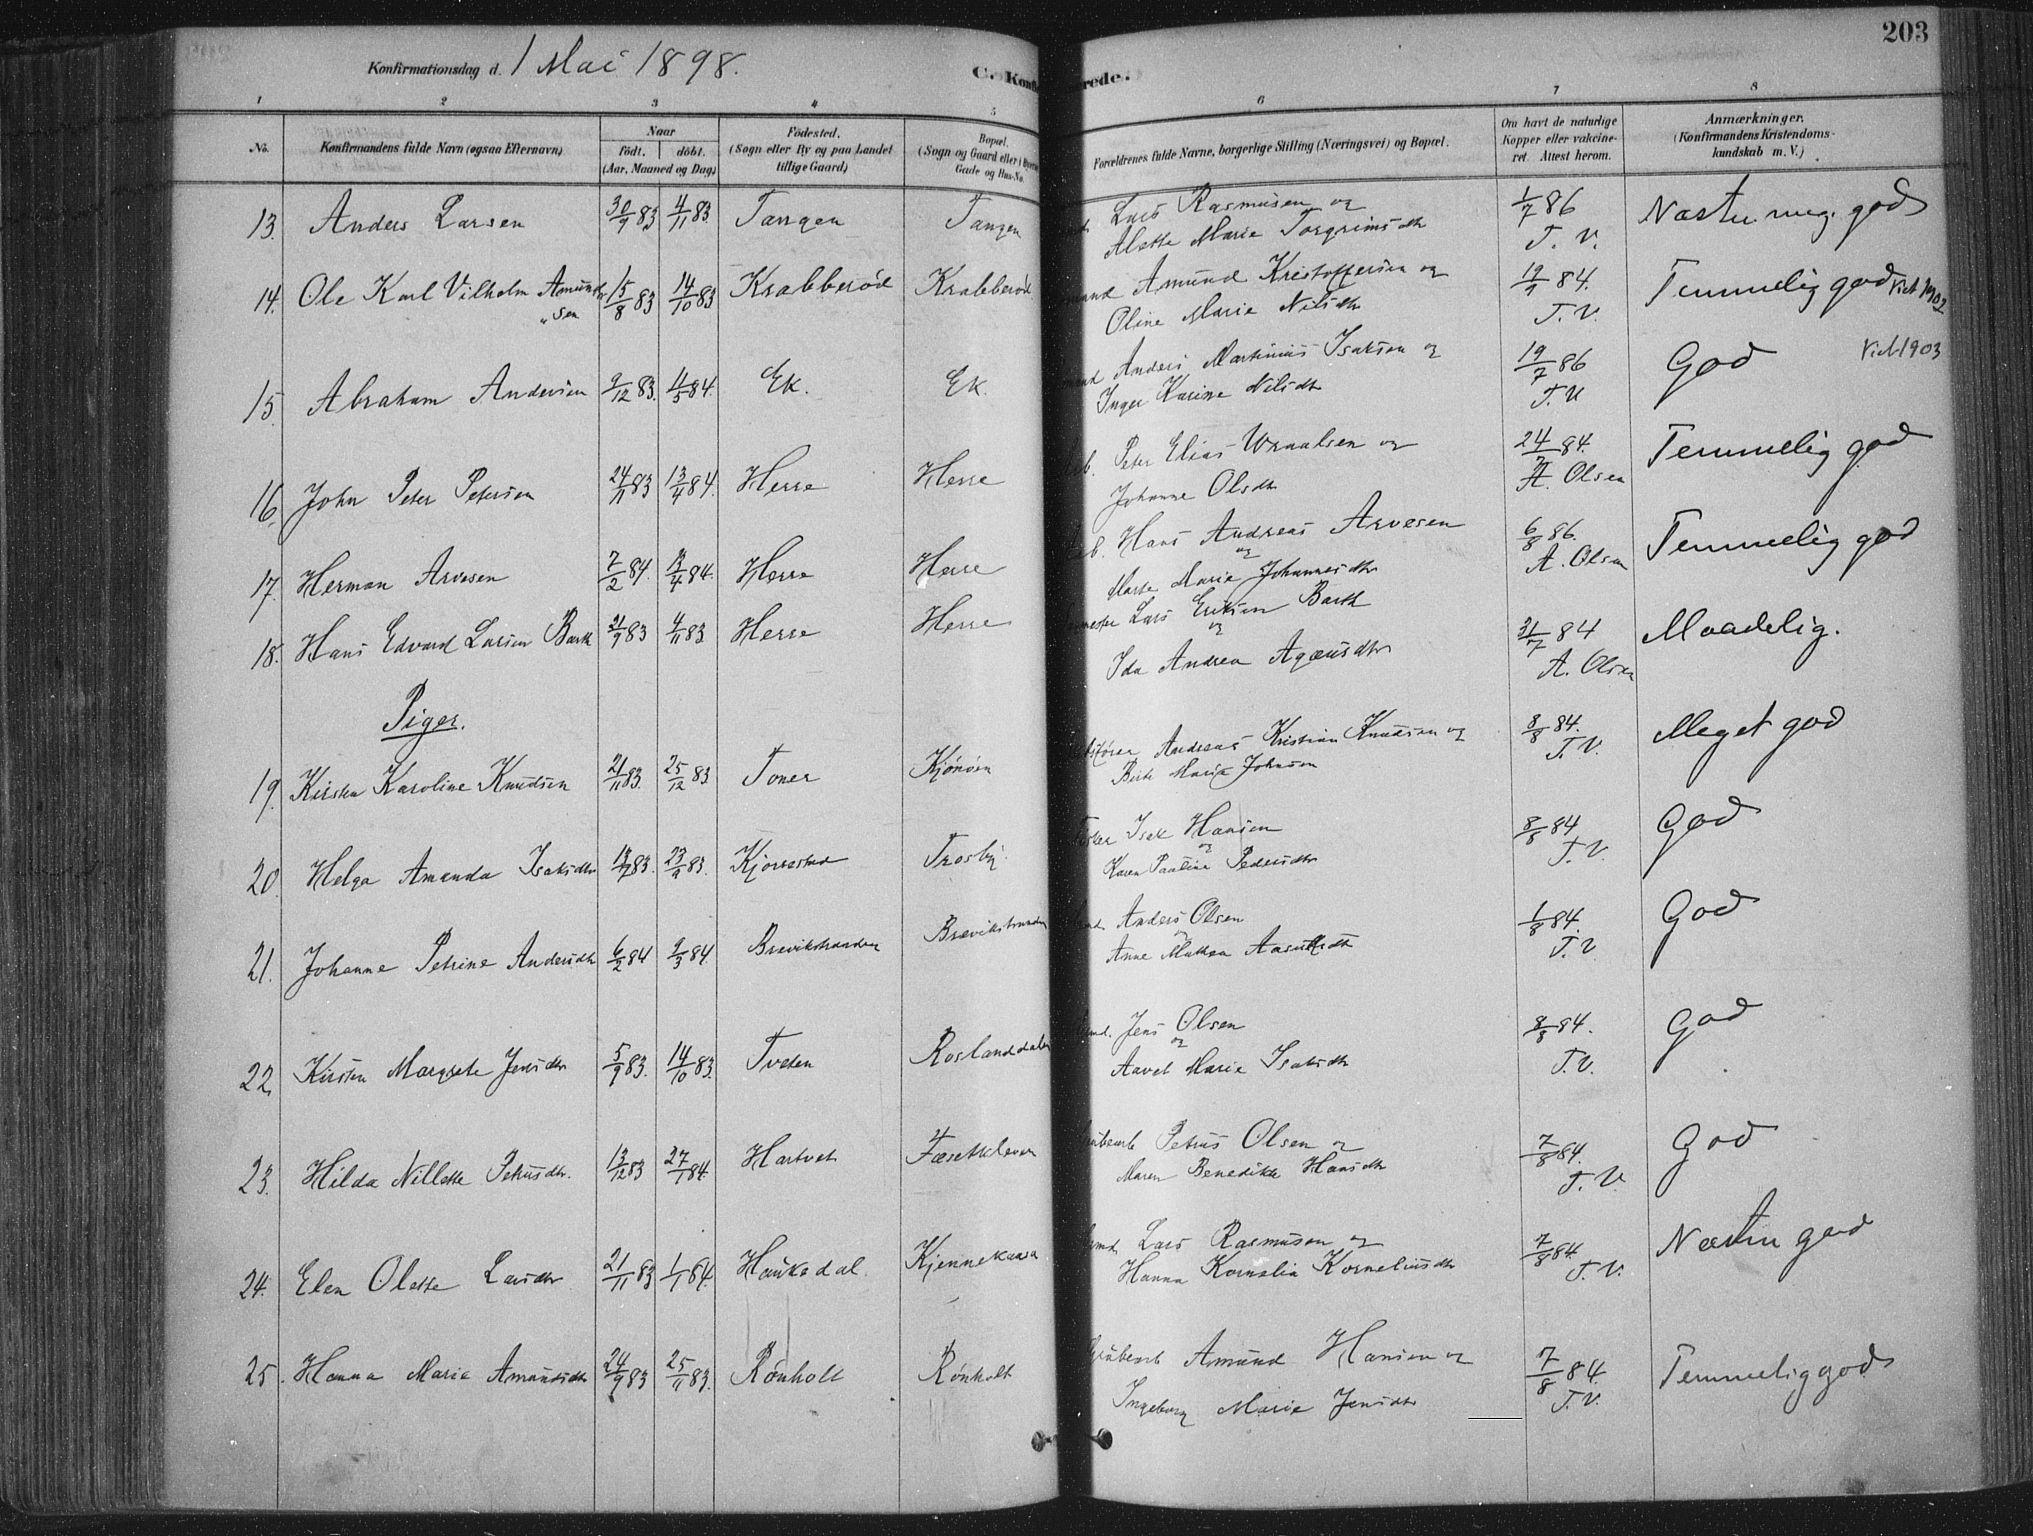 203
Konfirmationsdag d. 1 Mai 1898.
C. Konfirmerede.
1 2 3 4 5 6 7 8
No.
Konfirmandens fulde Navn (ogsaa Efternavn)
Naar
født. døbt.
(Aar, Maaned og Dag)
Fødested.
(Sogn eller By og paa Landet
tillige Gaard)
Bopæl.
(Sogn og Gaard eller i
Gade og Hus-No.
Forældrenes fulde Navne, borgerlige Stilling (Næringsvei) og Bopæl.
Om havt de naturlige
Kopper eller vakcine-
ret Attest herom.
Anmærkninger.
(Konfirmandens Kristendoms-
kundskab m. V.)
13. Anders Larsen 30/9 83 4/11 83. Tangen Tangen Lars Rasmusen og 1/7 86 Næsten meg. god
Alette Marie Torgrimsdtr T. V.
14. Ole Karl Vilhelm Amund- 15/8 83 14/10 83 Krabberød Krabberød Amund Kristoffersen og 84. Temmelig god Vid 1902
"sen Oline Marie Nilsdtr T. V.
15. Abraham Andersen 9/12 83. 4/5 84. Ek. Ek. Anders Martinius Isaksen og 19/7 86 God Vid 1903
Inger Karine Nilsdtr T. V
16. John Peter Petersen 24/11 83 13/4 84. Herre Herre Peter Elias Wraalsen og 24/7 84. Temmelig god
Johanne Olsdtr A. Olsen
17. Herman Arvesen 7/2 84. 13/4 84. Herre Herre Hans Andreas Arvesen 6/8 86. Temmelig god
og A. Olsen
Marte Marie Johannesdtr
18. Hans Edvard Larsen Barth 21/9 83 4/11 83 Herre Herre Lars Eriksen Barth 31/7 84 Maadelig.
og
Ida Andrea Agæusdtr A. Olsen
Piger.
19. Kirsten Karoline Knudsen 21/11 83. 25/12 83 Toner Kjønøen Andreas Kristian Knudsen og 8/8 84. Meget god
Berte Marie Johnsen T. V.
20. Helga Amanda Isaksdtr 83. 23/9 83. Kjørrestad Trosby. Isak Hansen 8/8 84 God
og T. V.
Karen Pauline Pedersdtr
21. Johanne Petrine Andersdtr 6/2 84 9/3 84. Brevikstranden Brevikstranden Anders Olsen 1/8 84. God
Anne Mathea T. V
22. Kirsten Margrete Jensdtr 5/9 83. 14/10 83. Tveten Roslanddalen Jens Olsen 8/8 84. God
og
Aavet Marie Isaksdtr T. V.
23. Hilda Nillette Petrusdtr. 13/12 83 27/1 84. Hartvet Petrus Olsen og 7/8 84. God
Maren Benedikte Hansdtr T. V.
24. Elen Olette Larsdtr 21/11 83 1/1 84. Haukedal. Lars Rasmusen og 7/8 84. Næsten god
Hanna Kornelia Korneliusdtr T. V.
25. Hanna Marie Amundsdtr 24/9 83 25/11 83. Rønholt Rønholt Amund Hansen og 7/8 84. Temmelig god
Ingeborg Marie Jensdtr T. V.